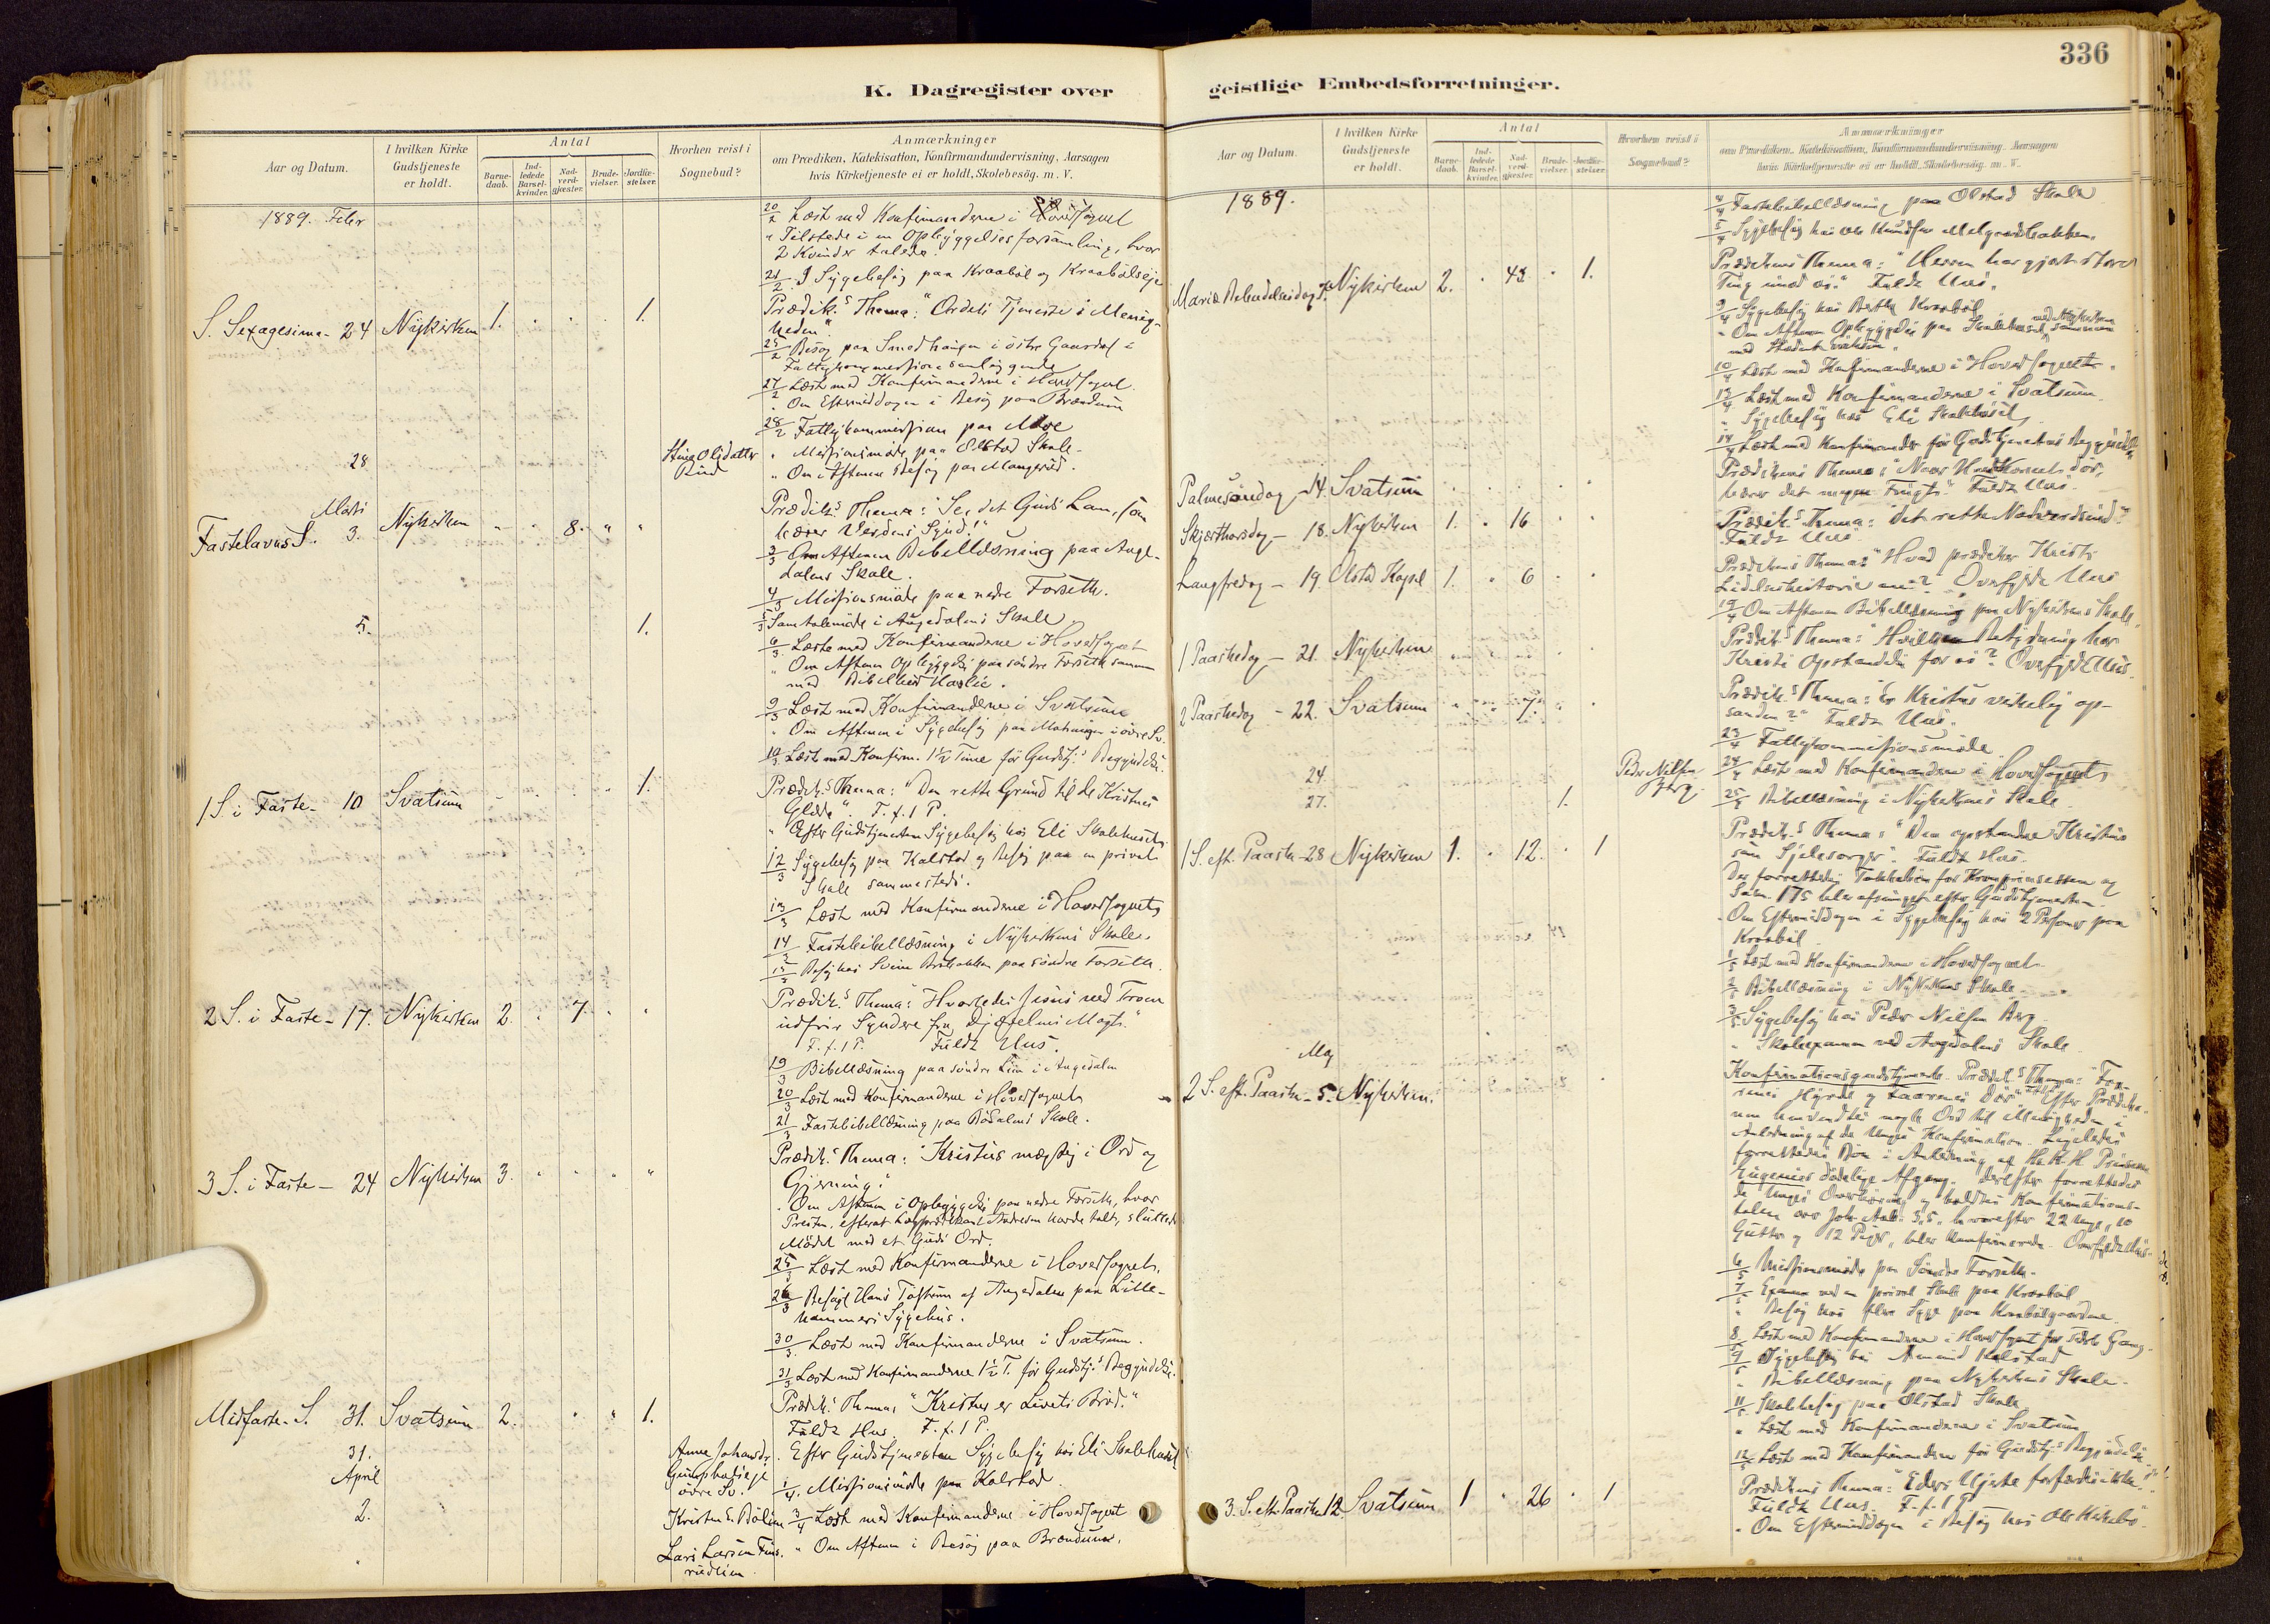 336
K. Dagregister over
geistlige Embedsforretninger.
Aar og Datum.
I hvilken Kirke
Gudstjeneste
er holdt.
Antal
Barne-
daab.
Ind-
ledede
Barsel-
kvinder.
Nad-
verd-
gjæster.
Brude-
vielser.
Jordfæ-
stelser.
Hvorhen reist i
Sognebud?
Anmærkninger
om Prædiken, Katekisation, Konfirmandundervisning, Aarsagen
hvis Kirketjeneste ei er holdt, Skolebesøg. m. V.
1889. Febr
20/2 Læst med Konfirmanderne i Hovedsognet
" Tilstede i en Opbyggelsesforsamling, hvor
2 Kvinder talede.
21/2 I Sygebesøg paa Kraabøl og Kraabølseje
S. Sexagesima - 24 Nykirken 1. 1. Prædik.s Thema: "Ordets Tjeneste i Menig-
heden".
25/2 Besøg paa Smedhaugen i østre Gausdal i
27/2 Læst med Konfirmanderne i Hovedsognet.
" Om Eftermiddagen i Besøg paa Brændum
28/2 Fattigkommission paa Moe
28 Stine Olsdatter " Missionsmøde paa Olstad Skole.
Rud " Om Aftenen Besøg paa Mangerud.
Marts
Fastelavns S. 3. Nykirken " " 8. " " Prædik.s Thema: "Se, det Guds Lam, som
bærer Verdens Synd!"
3/3 Om Aftenen Bibellæsning paa Auge-
dalens Skole.
4/3 Missionsmøde paa nedre Forseth.
5. 1. 5/3 Samtalemøde i Augedalens Skole
6/3 Læste med Konfirmanderne i Hovedsognet
" Om Aftenen Opbyggelse paa søndre Forseth sammen
med Bibelbud Haslie.
9/3 Læst med Konfirmanderne i Svatsum
" Om Aftenen i Sygebesøg paa i øvre Sv.
10/3 Læst med Konfirm. 1½ Time før Gudstj.s Begyndelse.
1 S. i Faste - 10 Svatsum 1. Prædik.s Thema: "Den rette Grund til de Kristnes
Glæde". F. f. 1 P.
" Efter Gudstjenesten Sygebesøg hos Eli Skolehuset
12/3 Sygebesøg paa Kalstad og Besøg paa en privat
Skole sammesteds.
13/3 Læst med Konfirmanderne i Hovedsognet
14/3 Fastebibellæsning i Nykirkens Skole.
15/3 Besøg hos paa søndre Forseth.
2 S. i Faste - 17. Nykirken 2. 7 Prædik.s Thema: "Hvorledes Jesus ved Troen
udfrir Syndere fra Djævelens Magt."
F. f. 1 P. Fuldt Hus.
19/3 Bibellæsning paa søndre Lien i Augedalen
20/3 Læst med Konfirmanderne i Hovedsognet
21/3 Fastebibellæsning paa Bødalens Skole.
3 S. i Faste - 24 Nykirken 3. Prædik.s Thema: "Kristus mægtig i Ord og
Gjerning."
" Om Aftenen i Opbyggelse paa nedre Forseth, hvor
Presten, efterat Lægprædikant Andresen havde talt, sluttede
Mødet med et Guds Ord.
25/3 Læst med Konfirmanderne i Hovedsognet.
26/3 Besøgt Hans Toftum af Augedalen paa Lille-
hammers Sygehus.
30/3 Læst med Konfirmanderne i Svatsum.
31/3 Læst med Konfirmanderne 1½ T. før Gudstj.s Begyndelse.
Midfaste S. 31. Svatsum 2. 1. Prædik.s Thema: "Kristus er Livets Brød."
Fuldt Hus. F. f. 1 P.
31. Anne Johansdr. " Efter Gudstjenesten Sygebesøg hos Eli Skolehuset
April øvre Sv. 1/4 Missionsmøde paa Kalstad
2. 3/4 Læst med Konfirmanderne i Hovedsognet
Lars Larsen " Om Aftenen i Besøg paa Brændum.
Aar og Datum.
I hvilken Kirke
Gudstjeneste
er holdt.
Antal
Barne-
daab.
Ind-
ledede
Barsel-
kvinder.
Nad-
verd-
gjæster.
Brude-
vielser.
Jordfæ-
stelser.
Hvorhen reist i
Sognebud?
Anmærkninger
om Prædiken, Katekisation, Konfirmandundervisning, Aarsagen
hvis Kirketjeneste ei er holdt, Skolebesøg. m. V.
1889.
4/4 Fastebibellæsning paa Olstad Skole
5/4 Sygebesøg hos Knudsen Melgaardbakken.
Mariæ Bebudelsesdag 7. Nykirken 2. 48 1. Prædikens Thema: "Herren har gjort store
Ting imod os." Fuldt Hus.
9/4 Sygebesøg hos Kraabøl
" Om Aftenen Opbyggelse paa Skolehuset ved Nykirken sammen
med
10/4 Læst med Konfirmanderne i Hovedsognet.
13/4 Læst med Konfirmanderne i Svatsum.
" Sygebesøg hos Eli Skolehuset
14/4 Læst med Konfirmander før Gudstjenestens Begyndelse
Palmesøndag - 14. Svatsum Prædikens Thema: "Naar Hvedekornet dør,
bærer det megen Frugt." Fuldt Hus.
Skjærthorsdag - 18. Nykirken 1. 16 Prædik.s Thema: "det rette Nadverdsind"
Fuldt Hus.
Langfredag - 19. Olstad Kapel 1. 6 Prædikens Thema: "Hvad prædiker Kristi
Lidelseshistorie os?" Overfyldt Hus
19/4 Om Aftenen Bibellæsning paa Nykirkens Skole.
1 Paaskedag - 21. Nykirken Prædik.s Thema: "Hvilken Betydning har
Kristi Opstandelse for os?" Overfyldt Hus.
2 Paaskedag - 22. Svatsum 7. Prædik.s Thema: "Er Kristus virkelig op-
standen?" Fuldt Hus.
23/4 Fattigkommissionsmøde.
24. Peder Nilsen Berg. 24/4 Læst med Konfirmanderne i Hovedsognet
27. 1. 25/4 Bibellæsning i Nykirkens Skole.
1 S. eft. Paaske - 28 Nykirken 1. 12. 1 Prædik.s Thema: "Den opstandne Kristus
som Sjelesørger". Fuldt Hus.
Der forrettedes Takkebøn for Kronprinsessen og
Salm. 175 blev afsunget efter Gudstjenesten.
" Om Eftermiddagen i Sygebesøg hos 2 Personer paa
Kraabøl
1/5 Læst med Konfirmanderne i Hovedsognet
2/5 Bibellæsning i Nykirkens Skole.
3/5 Sygebesøg hos Peder Nilsen Berg.
" Skoleexamen ved Augedalens Skole
Maj
2 S. eft. Paaske - 5. Nykirken. Konfirmationsgudstjeneste. Prædik.s Thema: "Faa-
renes Hyrde og Faarenes Dør" Efter Prædike-
nen henvendtes nogle Ord til Menigheden i
Anledning af de Unges Konfirmation. Ligeledes
forrettedes Bøn i Anledning af H. K. H. Prinsesse
Eugenies dødelige Afgang. Derefter forrettedes
de Unges Overhøring og holdtes Konfirmations-
talen over Joh. Aab. 3,5, hvorefter 22 Unge, 10
Gutter og 12 Piger, blev konfirmerede. Overfyldt Hus.
6/5 Missionsmøde paa Søndre Forseth.
7/5 Examen ved en privat Skole paa Kraabøl
" Besøg hos flere Syge paa Kraabølgaardene.
8/5 Læst med Konfirmanderne i Hovedsognet for sidste Gang.
9/5 Sygebesøg hos Amund Kalstad
" Bibellæsning paa Nykirkens Skole.
11/5 Skolebesøg paa Olstad Skole
" Læst med Konfirmanderne i Svatsum
12/5 Læst med Konfirmanderne før Gudstj.s Begyndelse
3. S. eft. Paaske 12. Svatsum 1 26 1 Prædikens Thema: "Eders Hjerte forfærdes ikke!"
Fuldt Hus. F. f. 1 P.
" Om Eftermiddagen i Besøg hos